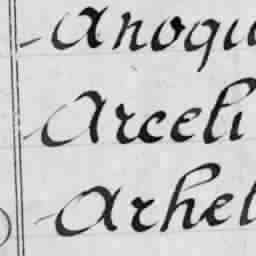 Anoqu
Arceli
Arhel